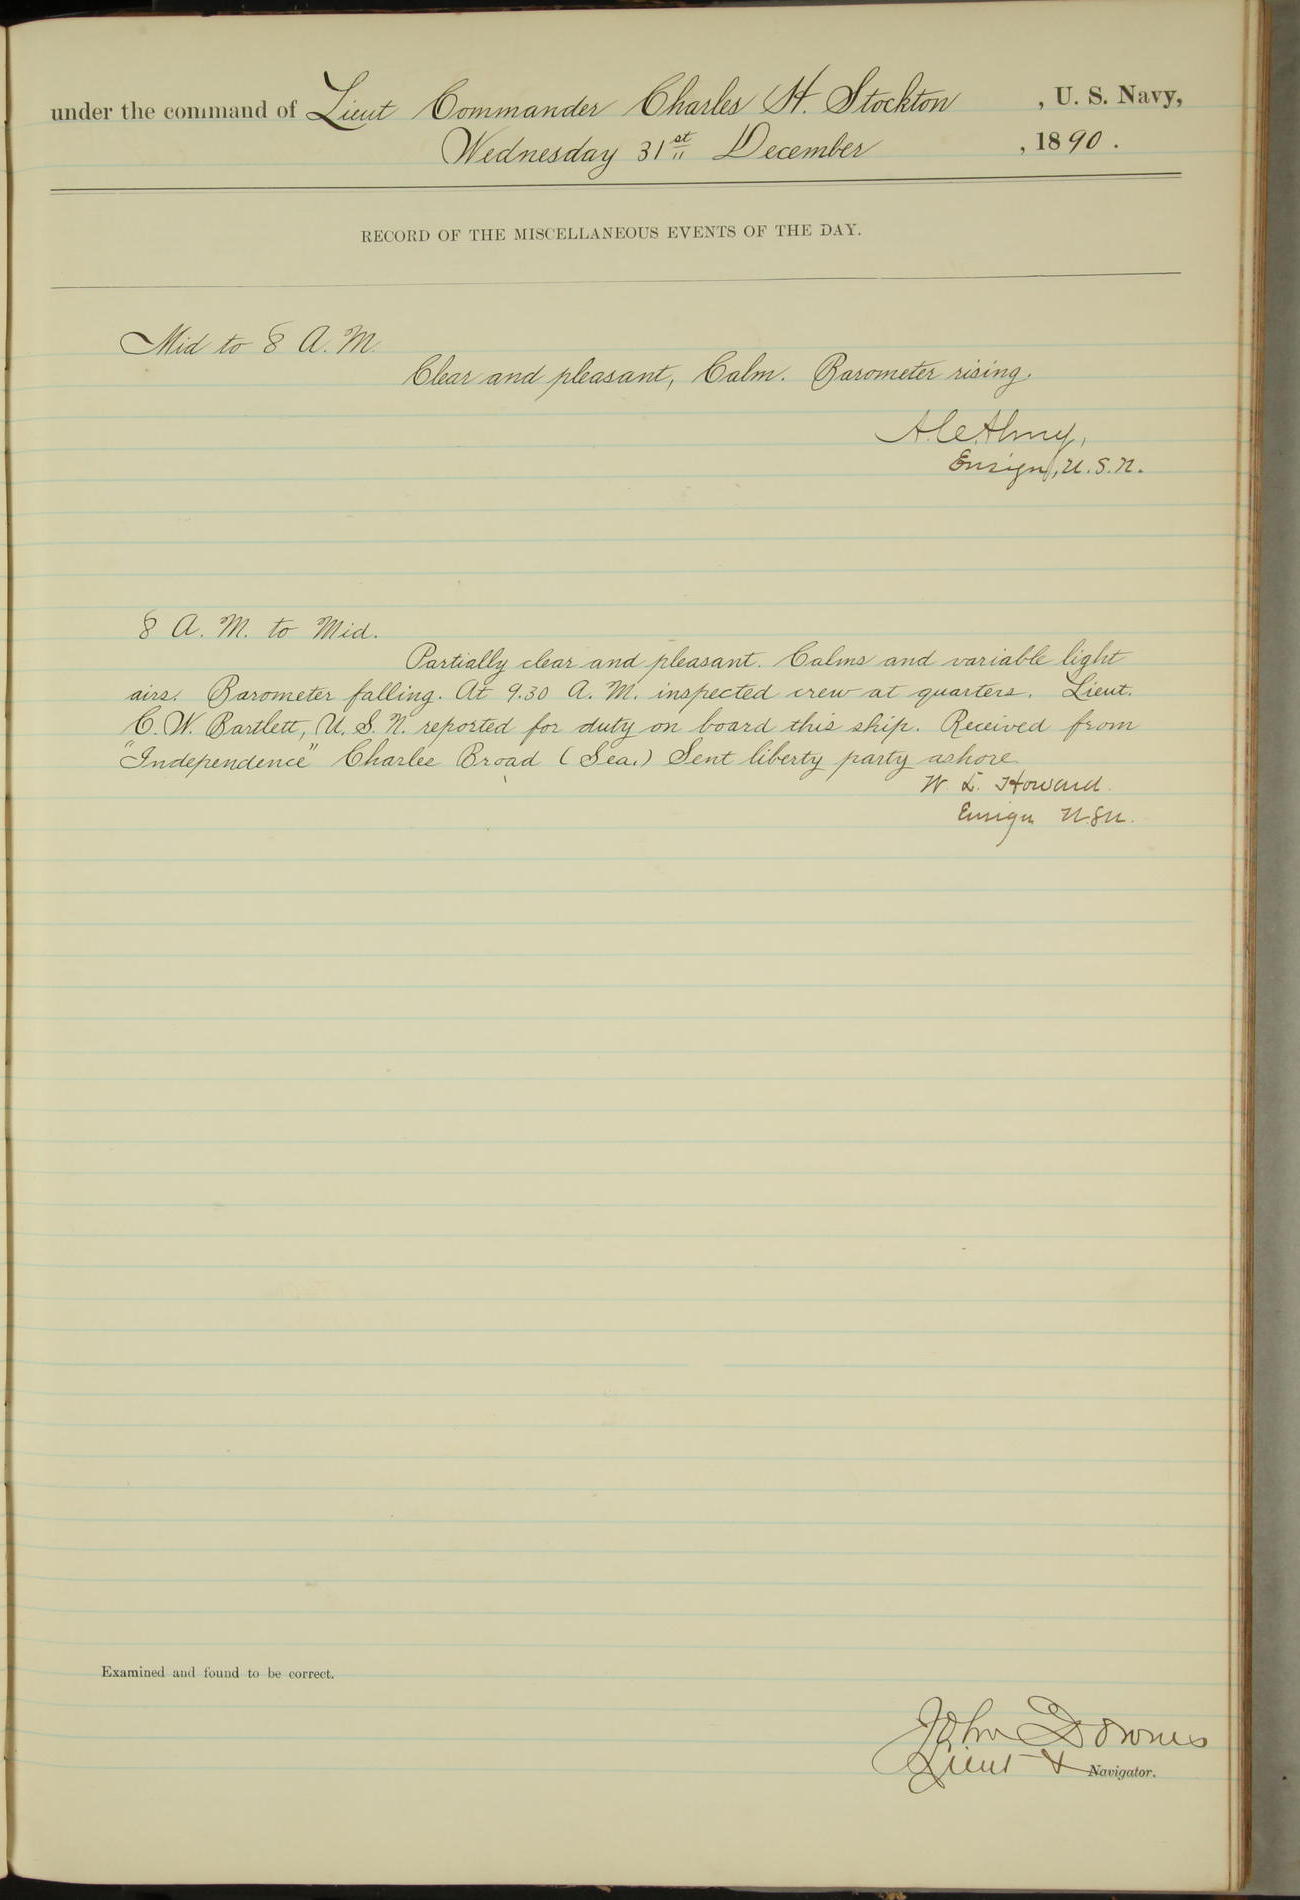 under the command of Lieut Commander Charles H. Stockton , U. S. Navy,
Wednesday 31st December , 1890 .
RECORD OF THE MISCELLANEOUS EVENTS OF THE DAY.
Mid to 8 A. M.
Clear and pleasant, Calm. Barometer rising.
A. C. Almy,
Ensign, U. S. N.
8 A. M. to Mid.
Partially clear and pleasant. Calms and variable light
airs. Barometer falling. At 9.30 A. M. inspected crew at quarters. Lieut.
C. W. Bartlett, U. S. N. reported for duty on board this ship. Received from
"Independence" Charles Broad (Sea.) Sent liberty party ashore
W. L. Howard.
Ensign U.S.N.
Examined and found to be correct.
John Downes
Lieut & Navigator.